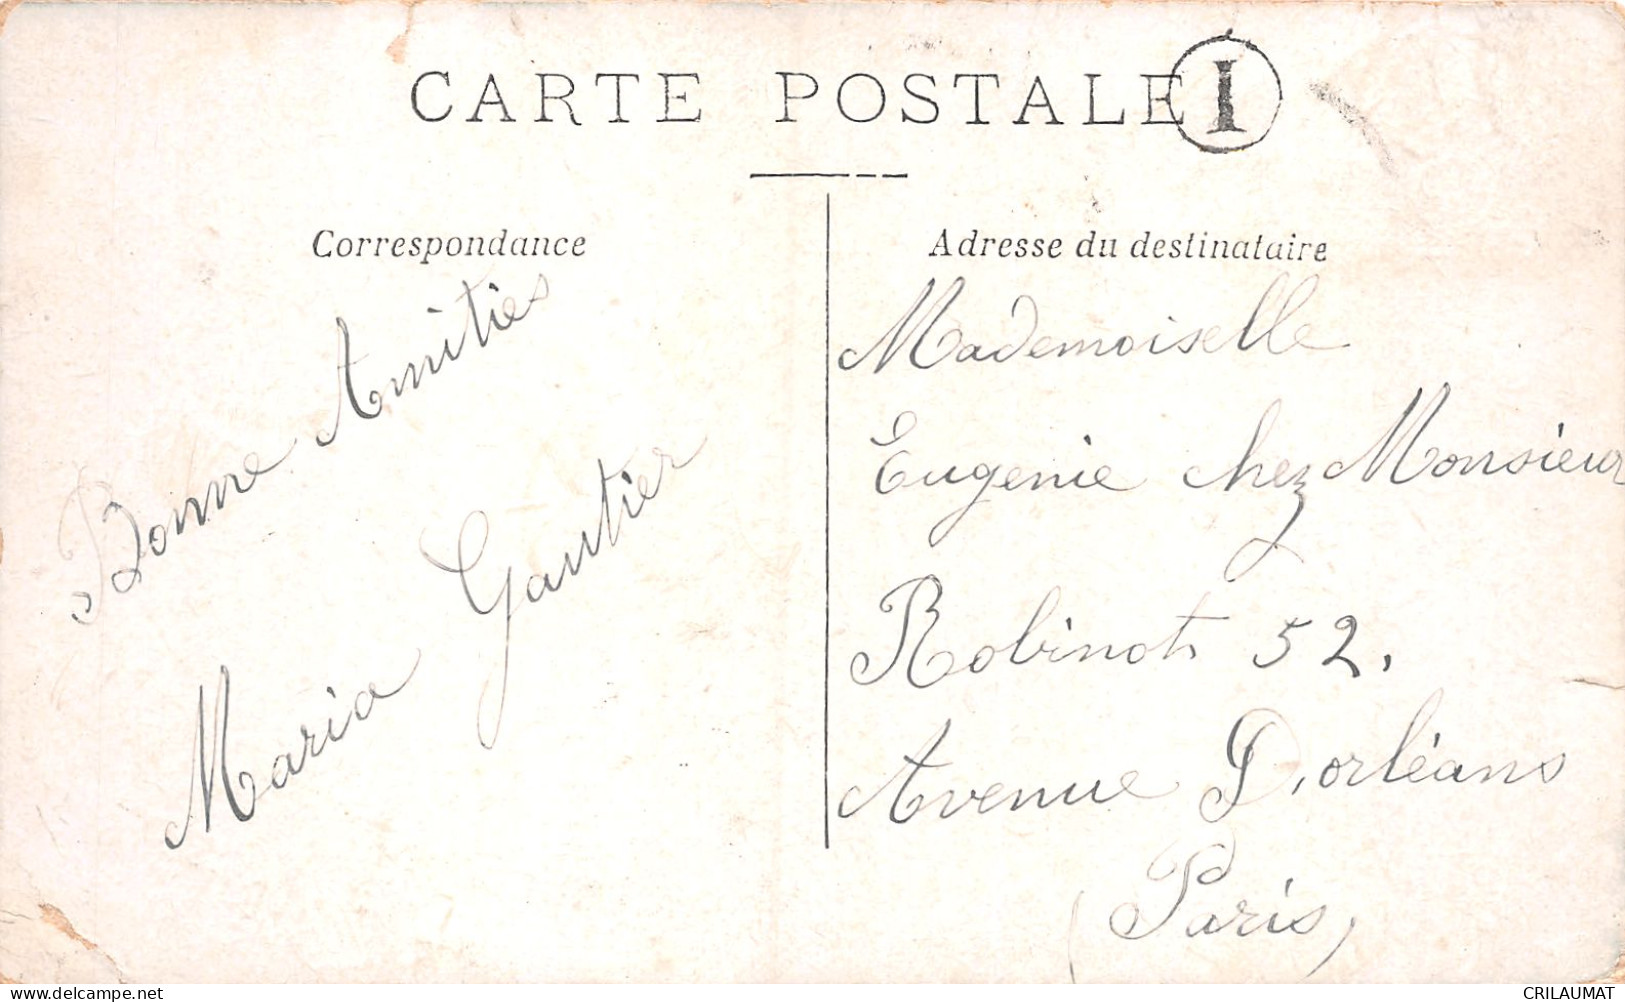 CARTE POSTALE
I
Correspondance
Bonne Amitiés
Maria Gautier
Adresse du destinataire
Mademoiselle
Eugenie chez Monsieur
Robinot 52.
Avenue D'orléans
(Paris)
www.delcampe.net
CRILAUMAT